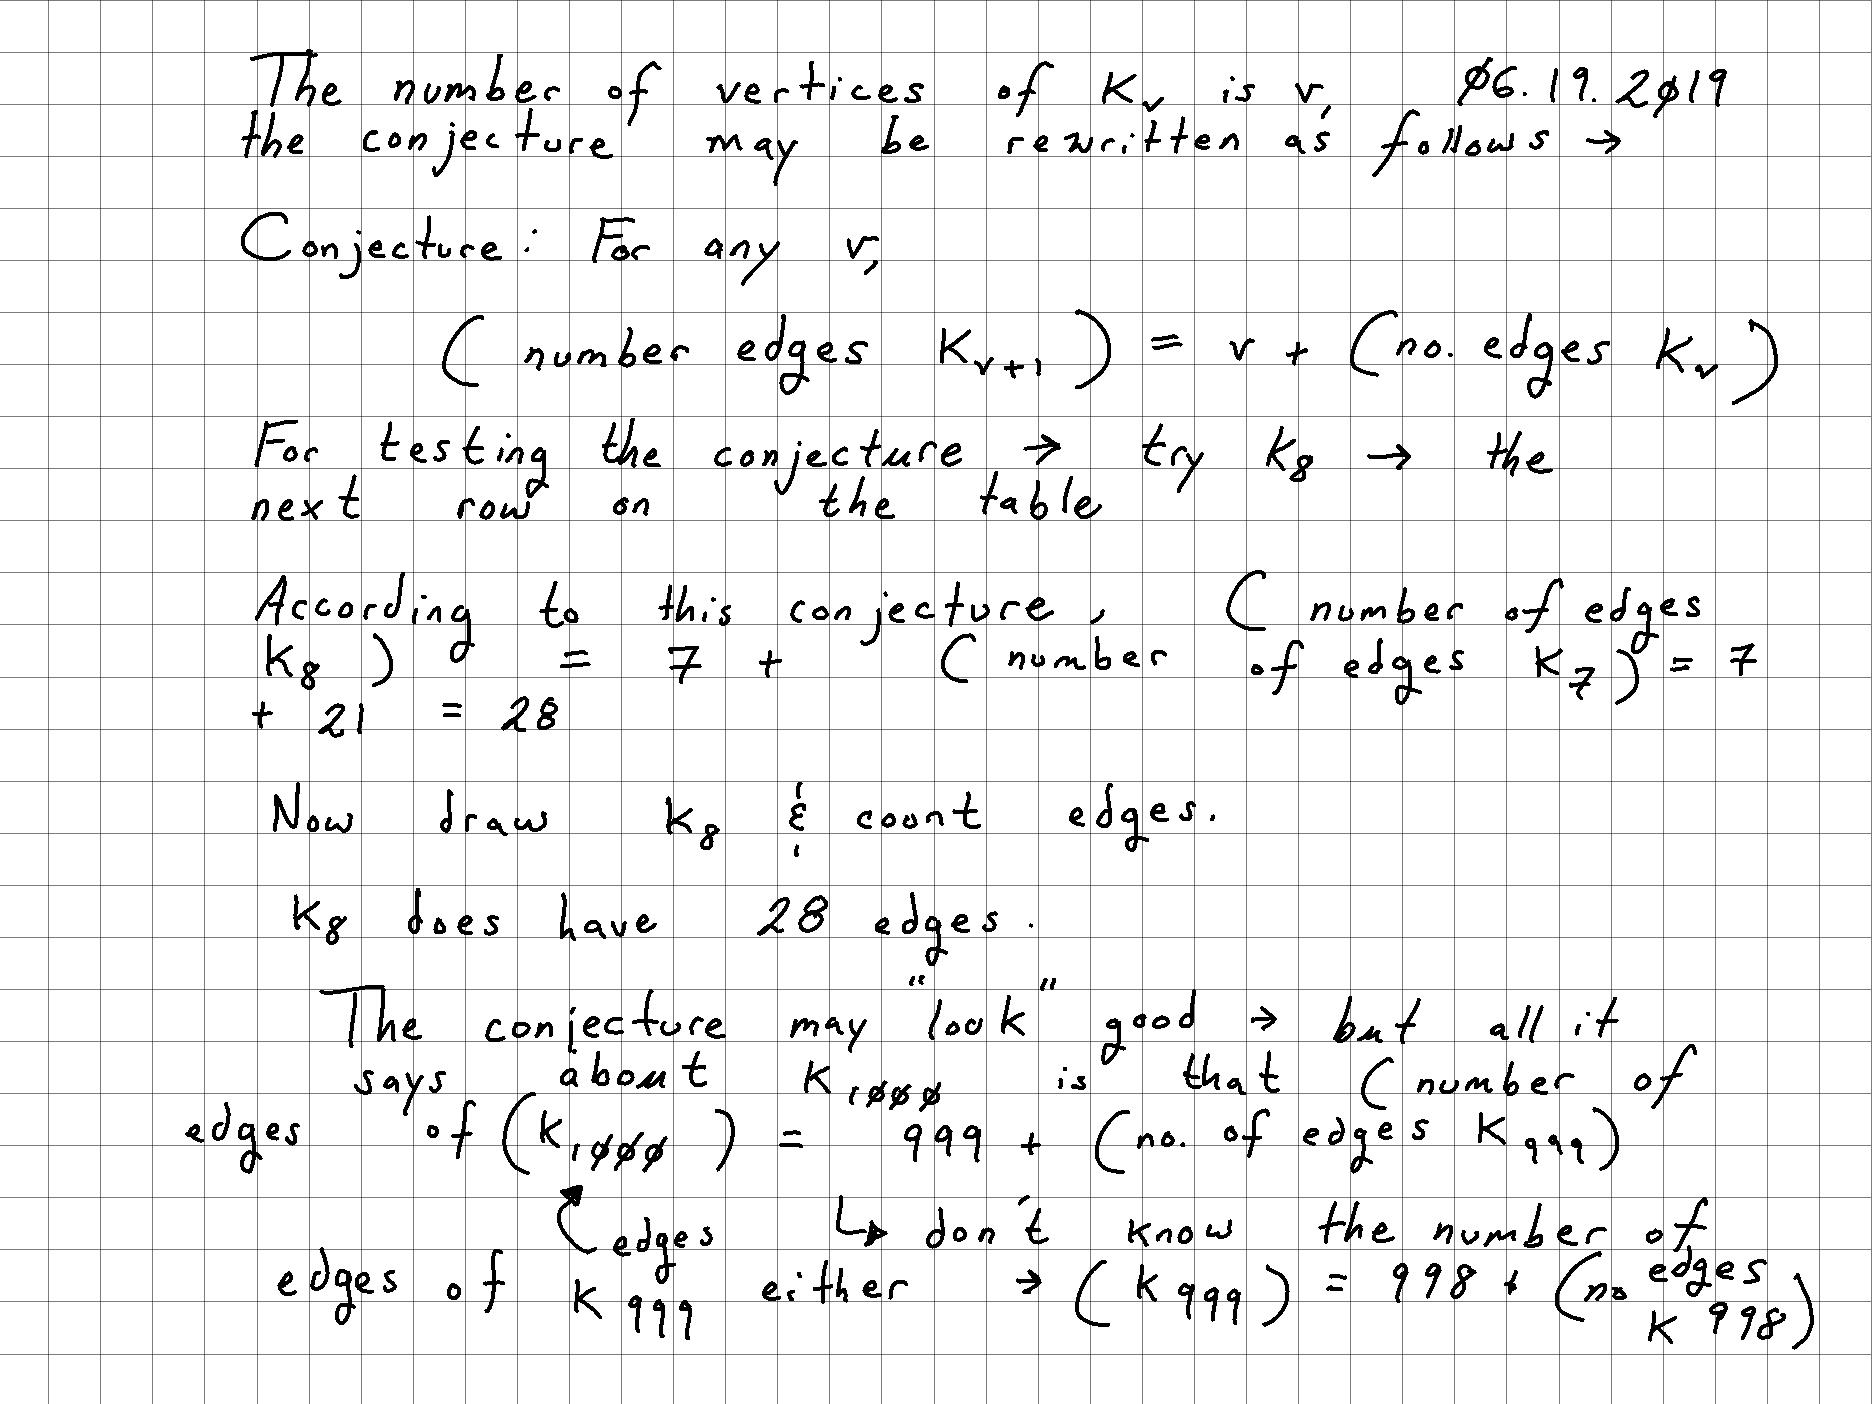 The number of vertices of Kᵥ is v, Ø6.19.2Ø19
the conjecture may be rewritten as follows →
Conjecture: For any v,
( number edges Kᵥ₊₁ ) = v + (no. edges Kᵥ )
For testing the conjecture → try K₈ → the
next row on the table
According to this conjecture, ( number of edges
K₈ ) = 7 + ( number of edges K₇ ) = 7
+ 21 = 28
Now draw K₈ & count edges.
K₈ does have 28 edges.
The conjecture may "look" good → but all it
says about K₁ØØØ is that ( number of
edges of (K₁ØØØ ) = 999 + (no. of edges K₉₉₉)
edges ↳ don't know the number of
edges of K₉₉₉ either → ( K₉₉₉ ) = 998 + (no edges
K 998)